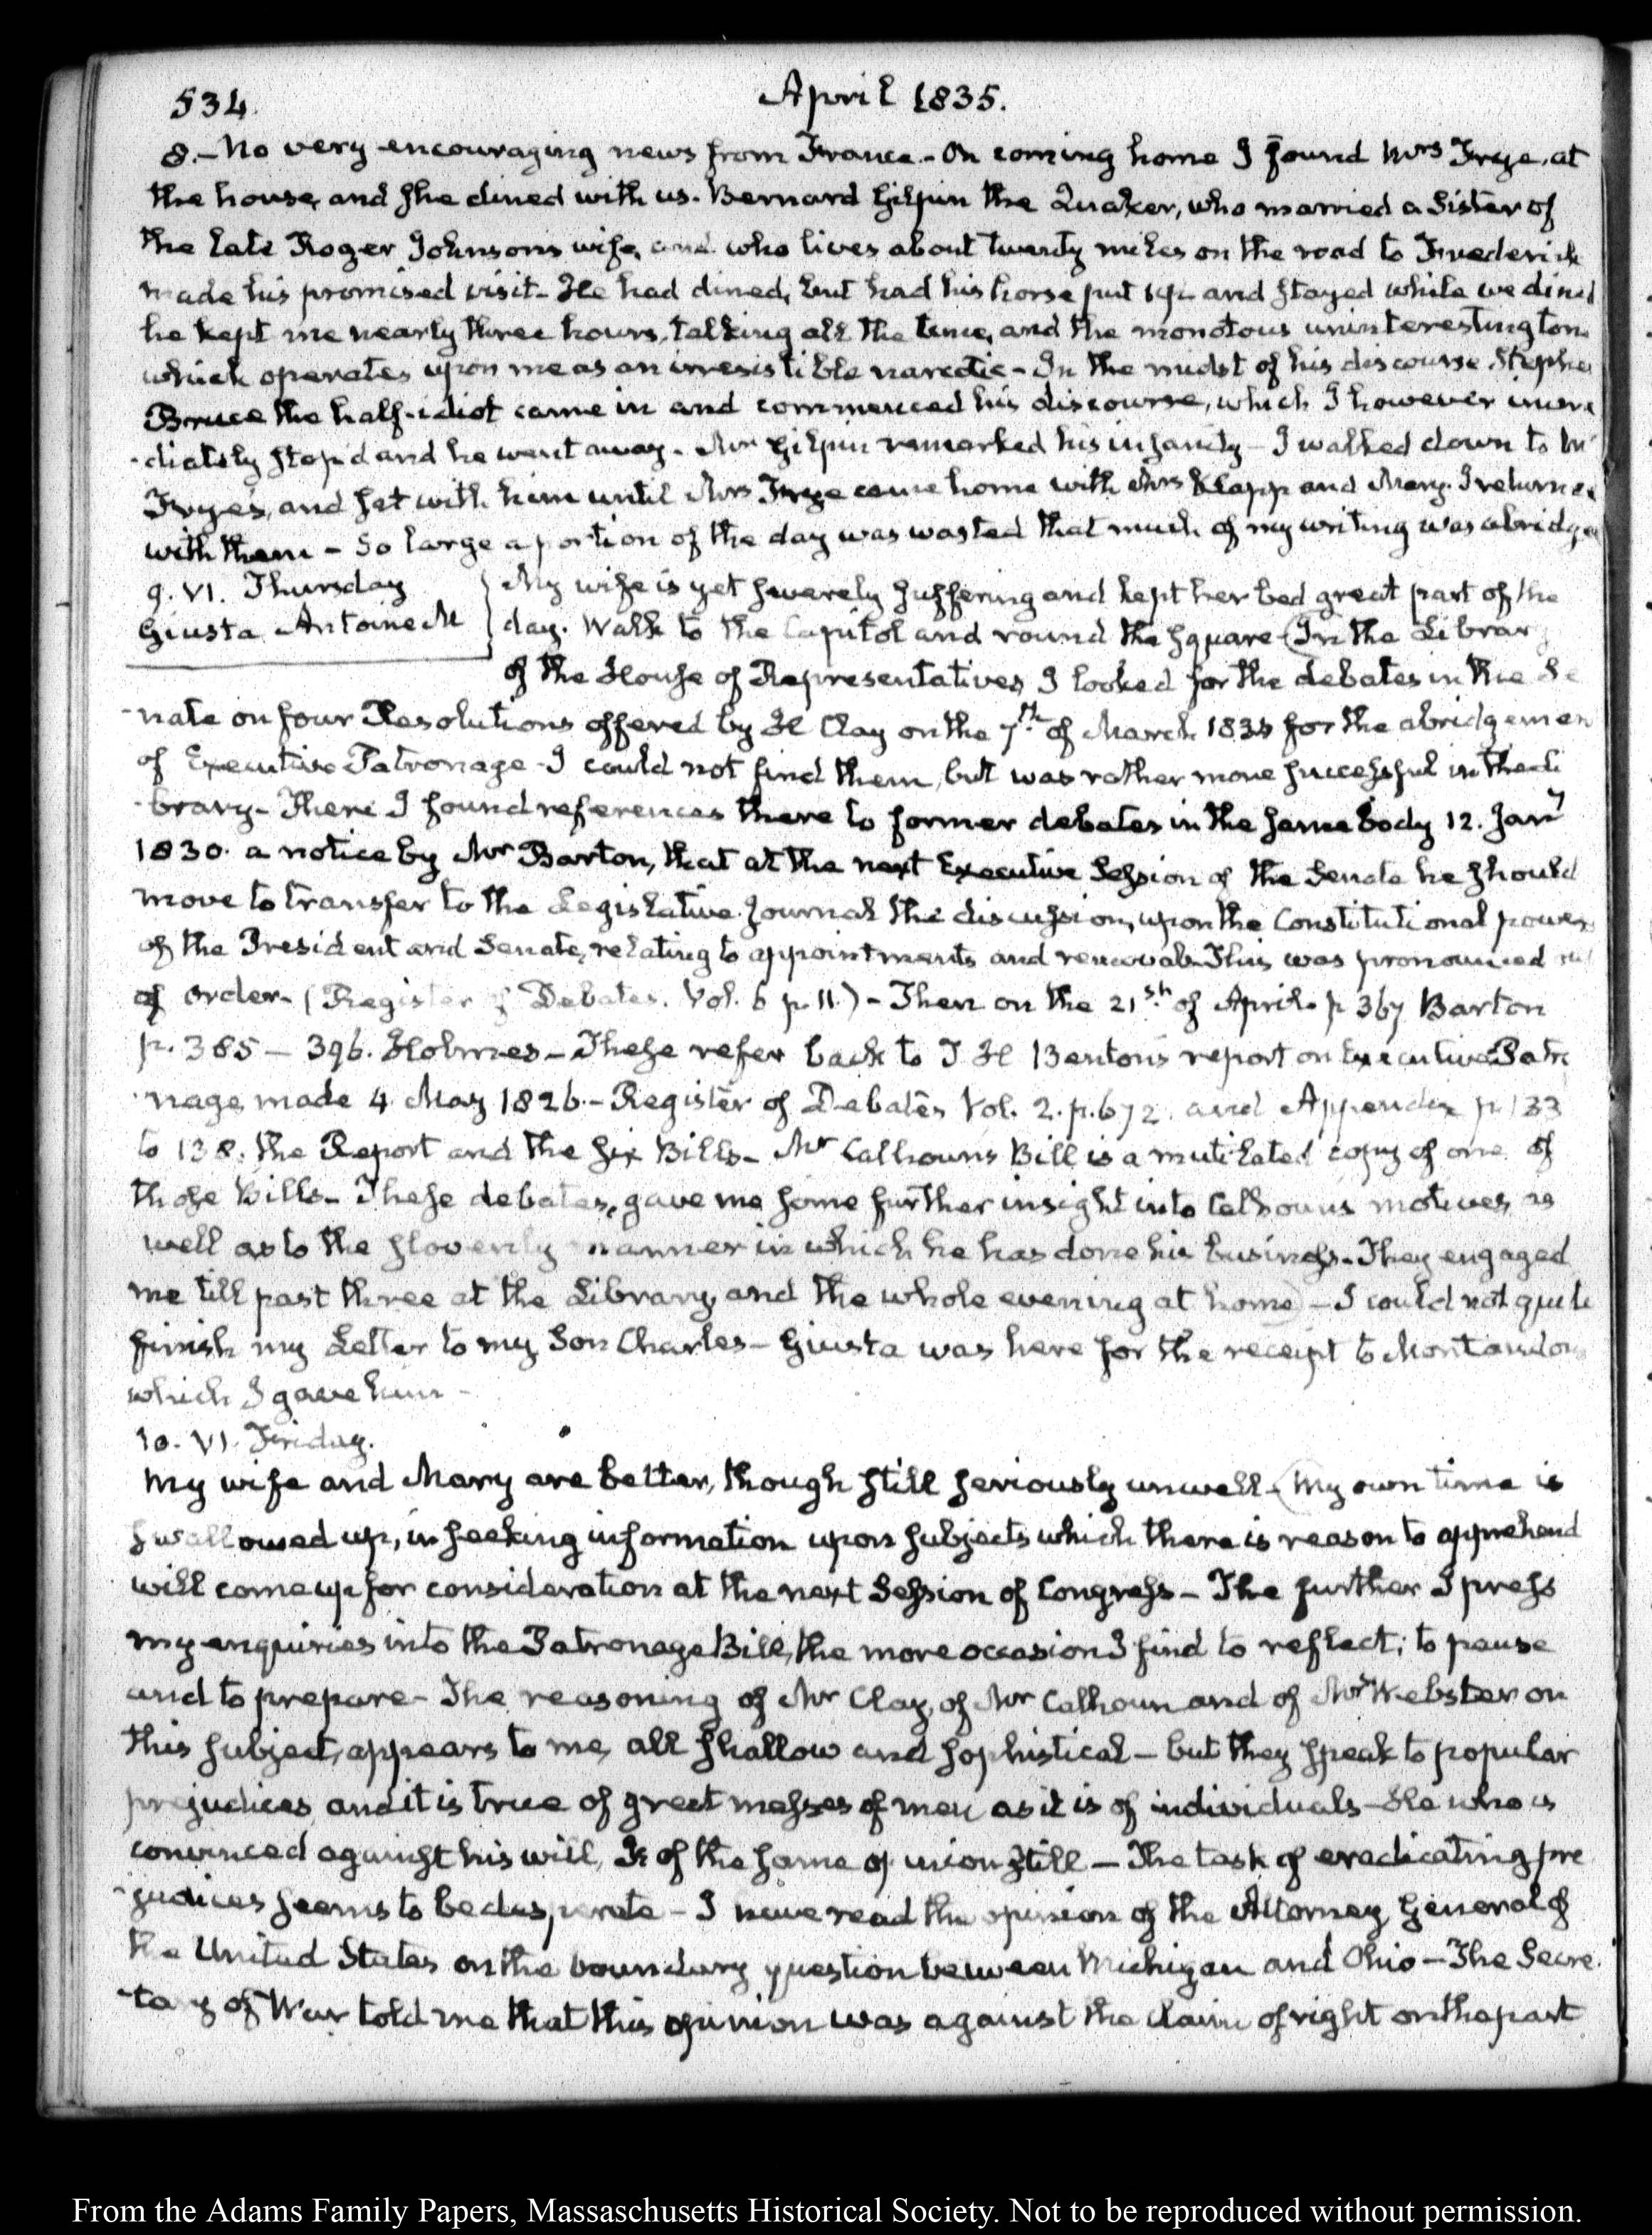 534.
April 1835.
8.— No very encouraging news from France.— On coming home I found Mrs Frye, at
the house, and she dined with us. Bernard Gilpin the Quaker, who married a Sister of
the late Roger Johnson's wife, and who lives about twenty miles on the road to Frederick
made his promised visit— He had dined, but had his horse put up and stayed while we dined
he kept me nearly three hours, talking all the time, and the monotous uninteresting tone
which operates upon me as an irresistible narcotic— In the midst of his discourse Stephen
Bruce the half-idiot came in and commenced his discourse, which I however imme
-diately stop'd and he went away. Mr Gilpin remarked his insanity— I walked down to Mr
Frye's, and sat with him until Mrs Frye came home with Mrs Clapp and Mary. I returned
with them— So large a portion of the day was wasted that much of my writing was abridged
9. VI. Thursday
Giusta Antoine M
My wife is yet severely suffering and kept her bed great part of the
day. Walk to the Capitol and round the square (In the Library
of the House of Representatives I looked for the debates in the Se
-nate on four Resolutions offered by H Clay on the 7th of March 1834 for the abridgement
of Executive Patronage— I could not find them, but was rather more successful in the Li
-brary— There I found references there to former debates in the same body 12. Jany
1830. a notice by Mr Barton, that at the next Executive Session of the Senate he should
move to transfer to the Legislative Journal the discussion, upon the Constitutional powers
of the President and Senate, relating to appointments and removals This was pronounced out
of order— (Register of Debates. Vol. 6 p. 11.)— Then on the 21st of April. p 367 Barton
p. 385— 396. Holmes— These refer back to T. H Benton's report on Executive Patro
-nage, made 4 May 1826.— Register of Debates Vol. 2. p. 672. and Appendix p. 133
to 138. the Report and the six Bills— Mr Calhoun's Bill is a mutilated copy of one of
those Bills— These debates, gave me some further insight into Calhoun's motives, as
well as to the slovenly manner in which he has done his business— They engaged
me till past three at the Library, and the whole evening at home)— I could not quite
finish my Letter to my Son Charles— Giusta was here for the receipt to Montandon
which I gave him—
10. VI. Friday.
My wife and Mary are better, though still seriously unwell— (My own time is
swallowed up, in seeking information upon subjects which there is reason to apprehend
will come up for consideration at the next Session of Congress— The further I press
my enquiries into the Patronage Bill, the more occasion I find to reflect; to pause
and to prepare— The reasoning of Mr Clay, of Mr Calhoun and of Mr Webster on
this subject, appears to me, all shallow and sophistical— but they speak to popular
prejudices and it is true of great masses of men as it is of individuals— He who is
convinced against his will, Is of the same opinion still— The task of eradicating pre
-judices seems to be desperate— I have read the opinion of the Attorney General of
the United States on the boundary question between Michigan and Ohio— The Secre
-tary of War told me that this opinion was against the claim of right on the part
From the Adams Family Papers, Massaschusetts Historical Society. Not to be reproduced without permission.